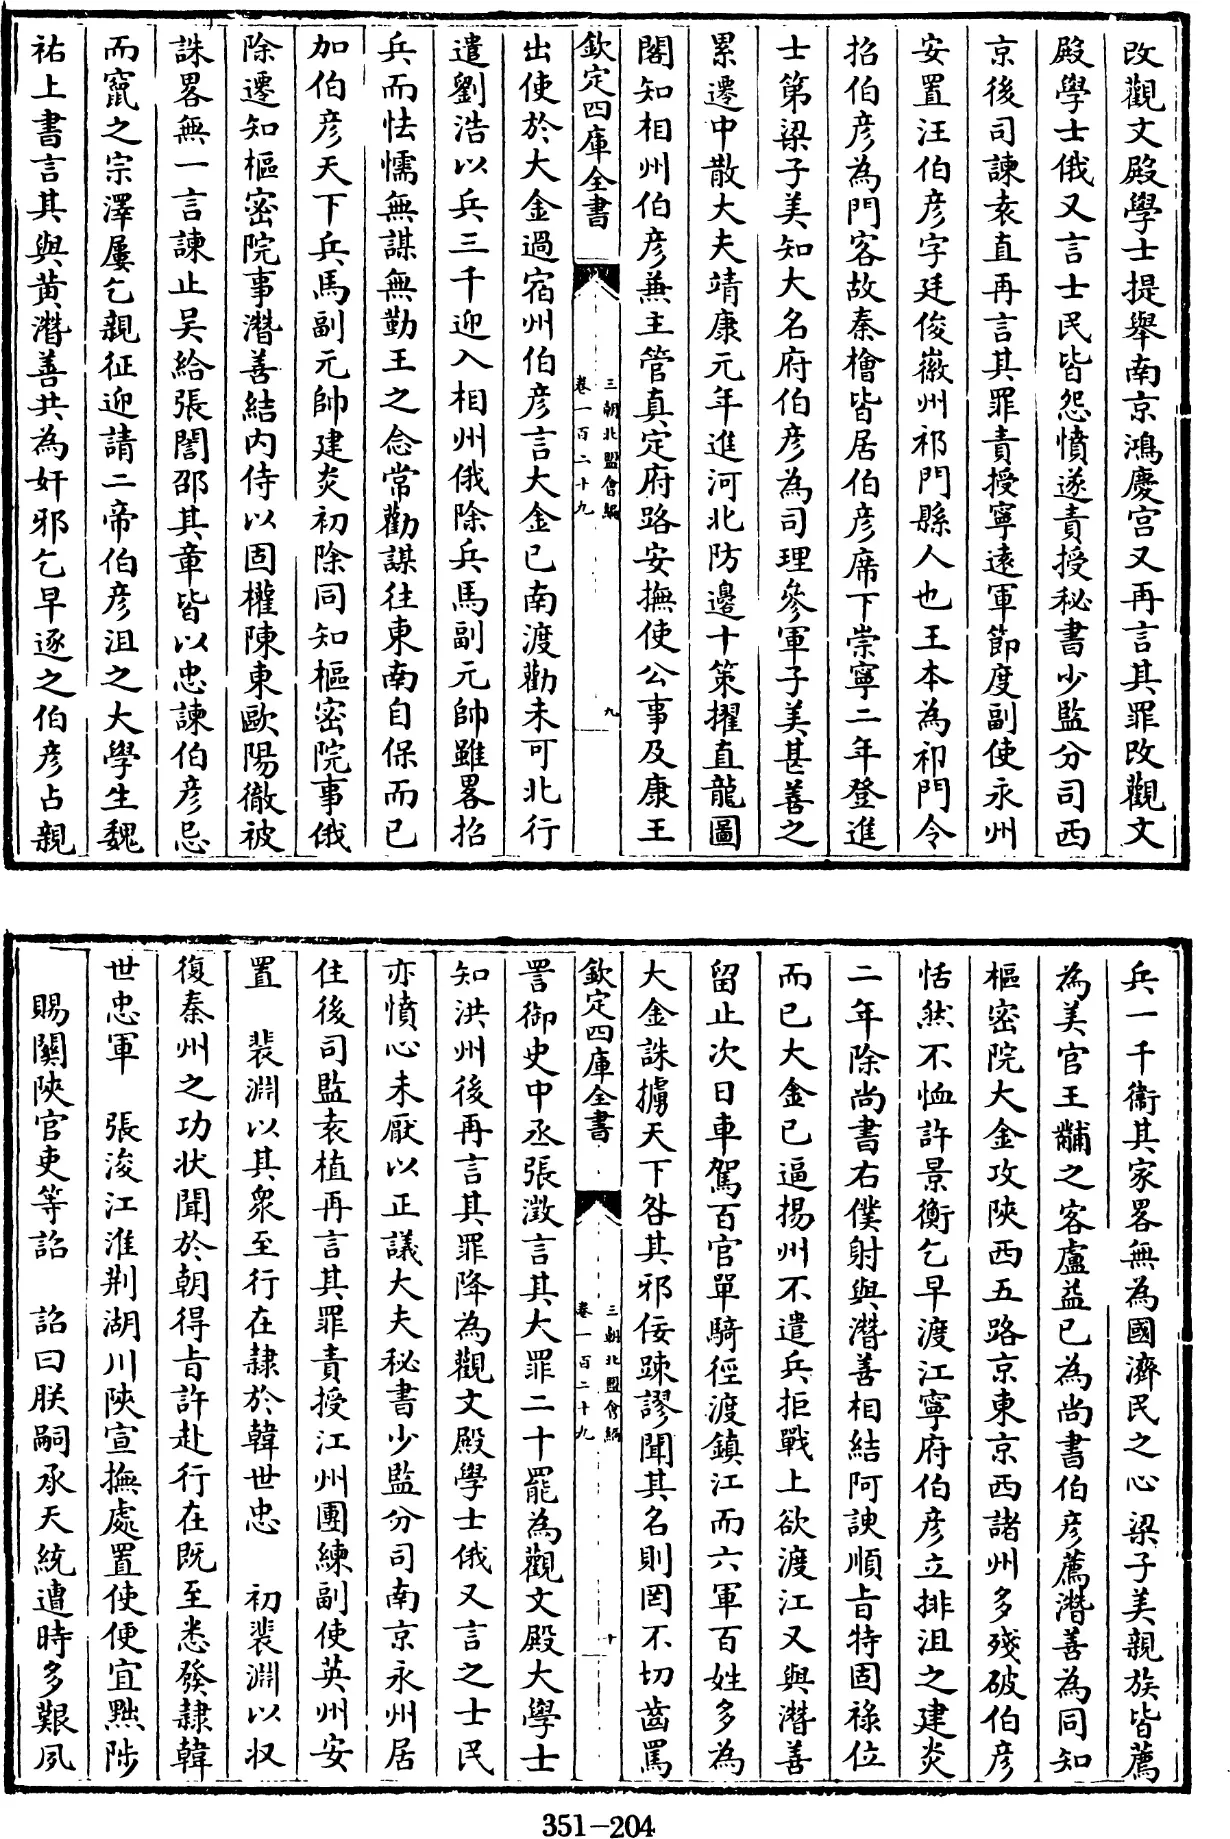 改觀文殿學士提舉南京鴻慶宮又再言其罪改觀文
殿學士俄又言士民皆怨憤遂責授秘書少監分司西
京後司諫袁直再言其罪責授寧遠軍節度副使永州
安置汪伯彦字廷俊徽州祁門縣人也王本為祁門令
招伯彦為門客故秦檜皆居伯彦席下崇寧二年登進
士第梁子美知大名府伯彦為司理參軍子美甚善之
累遷中散大夫靖康元年進河北防邊十策擢直龍圖
閣知相州伯彦兼主管真定府路安撫使公事及康王
欽定四庫全書
三朝北盟會編
卷一百二十九
九
出使於大金過宿州伯彦言大金已南渡勸未可北行
遣劉浩以兵三千迎入相州俄除兵馬副元帥雖畧招
兵而怯懦無謀無勤王之念常勸謀往東南自保而已
加伯彦天下兵馬副元帥建炎初除同知樞密院事俄
除遷知樞密院事潛善結内侍以固權陳東歐陽徹被
誅畧無一言諫止吴給張誾邵其章皆以忠諫伯彦忌
而竄之宗澤屢乞親征迎請二帝伯彦沮之大學生魏
祐上書言其與黄潛善共為奸邪乞早逐之伯彦占親
兵一千衞其家畧無為國濟民之心梁子美親族皆薦
為美官王黼之客盧益已為尚書伯彦薦潛善為同知
樞密院大金攻陜西五路京東京西諸州多殘破伯彦
恬然不恤許景衡乞早渡江寧府伯彦立排沮之建炎
二年除尚書右僕射與潛善相結阿諛順旨特固祿位
而已大金已逼揚州不遣兵拒戰上欲渡江又與潛善
留止次日車駕百官單騎徑渡鎮江而六軍百姓多為
大金誅擄天下咎其邪佞踈謬聞其名則罔不切齒罵
欽定四庫全書
三朝北盟會編
卷一百二十九
十
詈御史中丞張澂言其大罪二十罷為觀文殿大學士
知洪州後再言其罪降為觀文殿學士俄又言之士民
亦憤心未厭以正議大夫秘書少監分司南京永州居
住後司監袁植再言其罪責授江州團練副使英州安
置　裴淵以其衆至行在隷於韓世忠　初裴淵以収
復秦州之功状聞於朝得旨許赴行在既至悉發隷韓
世忠軍　張浚江淮荆湖川陜宣撫處置使便宜黜陟
賜關陜官吏等詔　詔曰朕嗣承天統遭時多艱夙
351-204